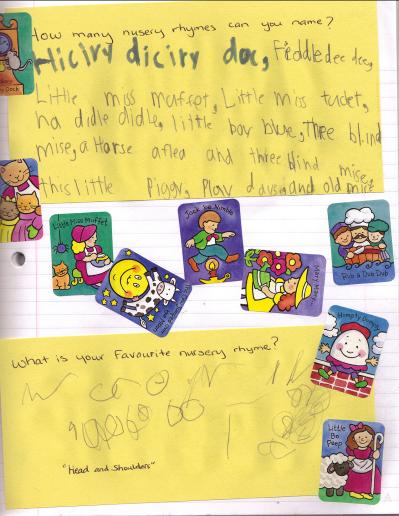 How many nursery rhymes can you name?
Hiciry diciry doc, Fiddle dee dee,
Little miss muffet, Little miss tucket,
ha didle didle, little boy blue, Three blind
mise, a Horse aflea and three blind mise,
this little Piggy, Play days and old
Little Miss Muffet
Jack be Nimble
Rub a Dub Dub
Mary Mary
Humpty Dumpty
What is your favourite nursery rhyme?
Little Bo Peep
"Head and Shoulders"